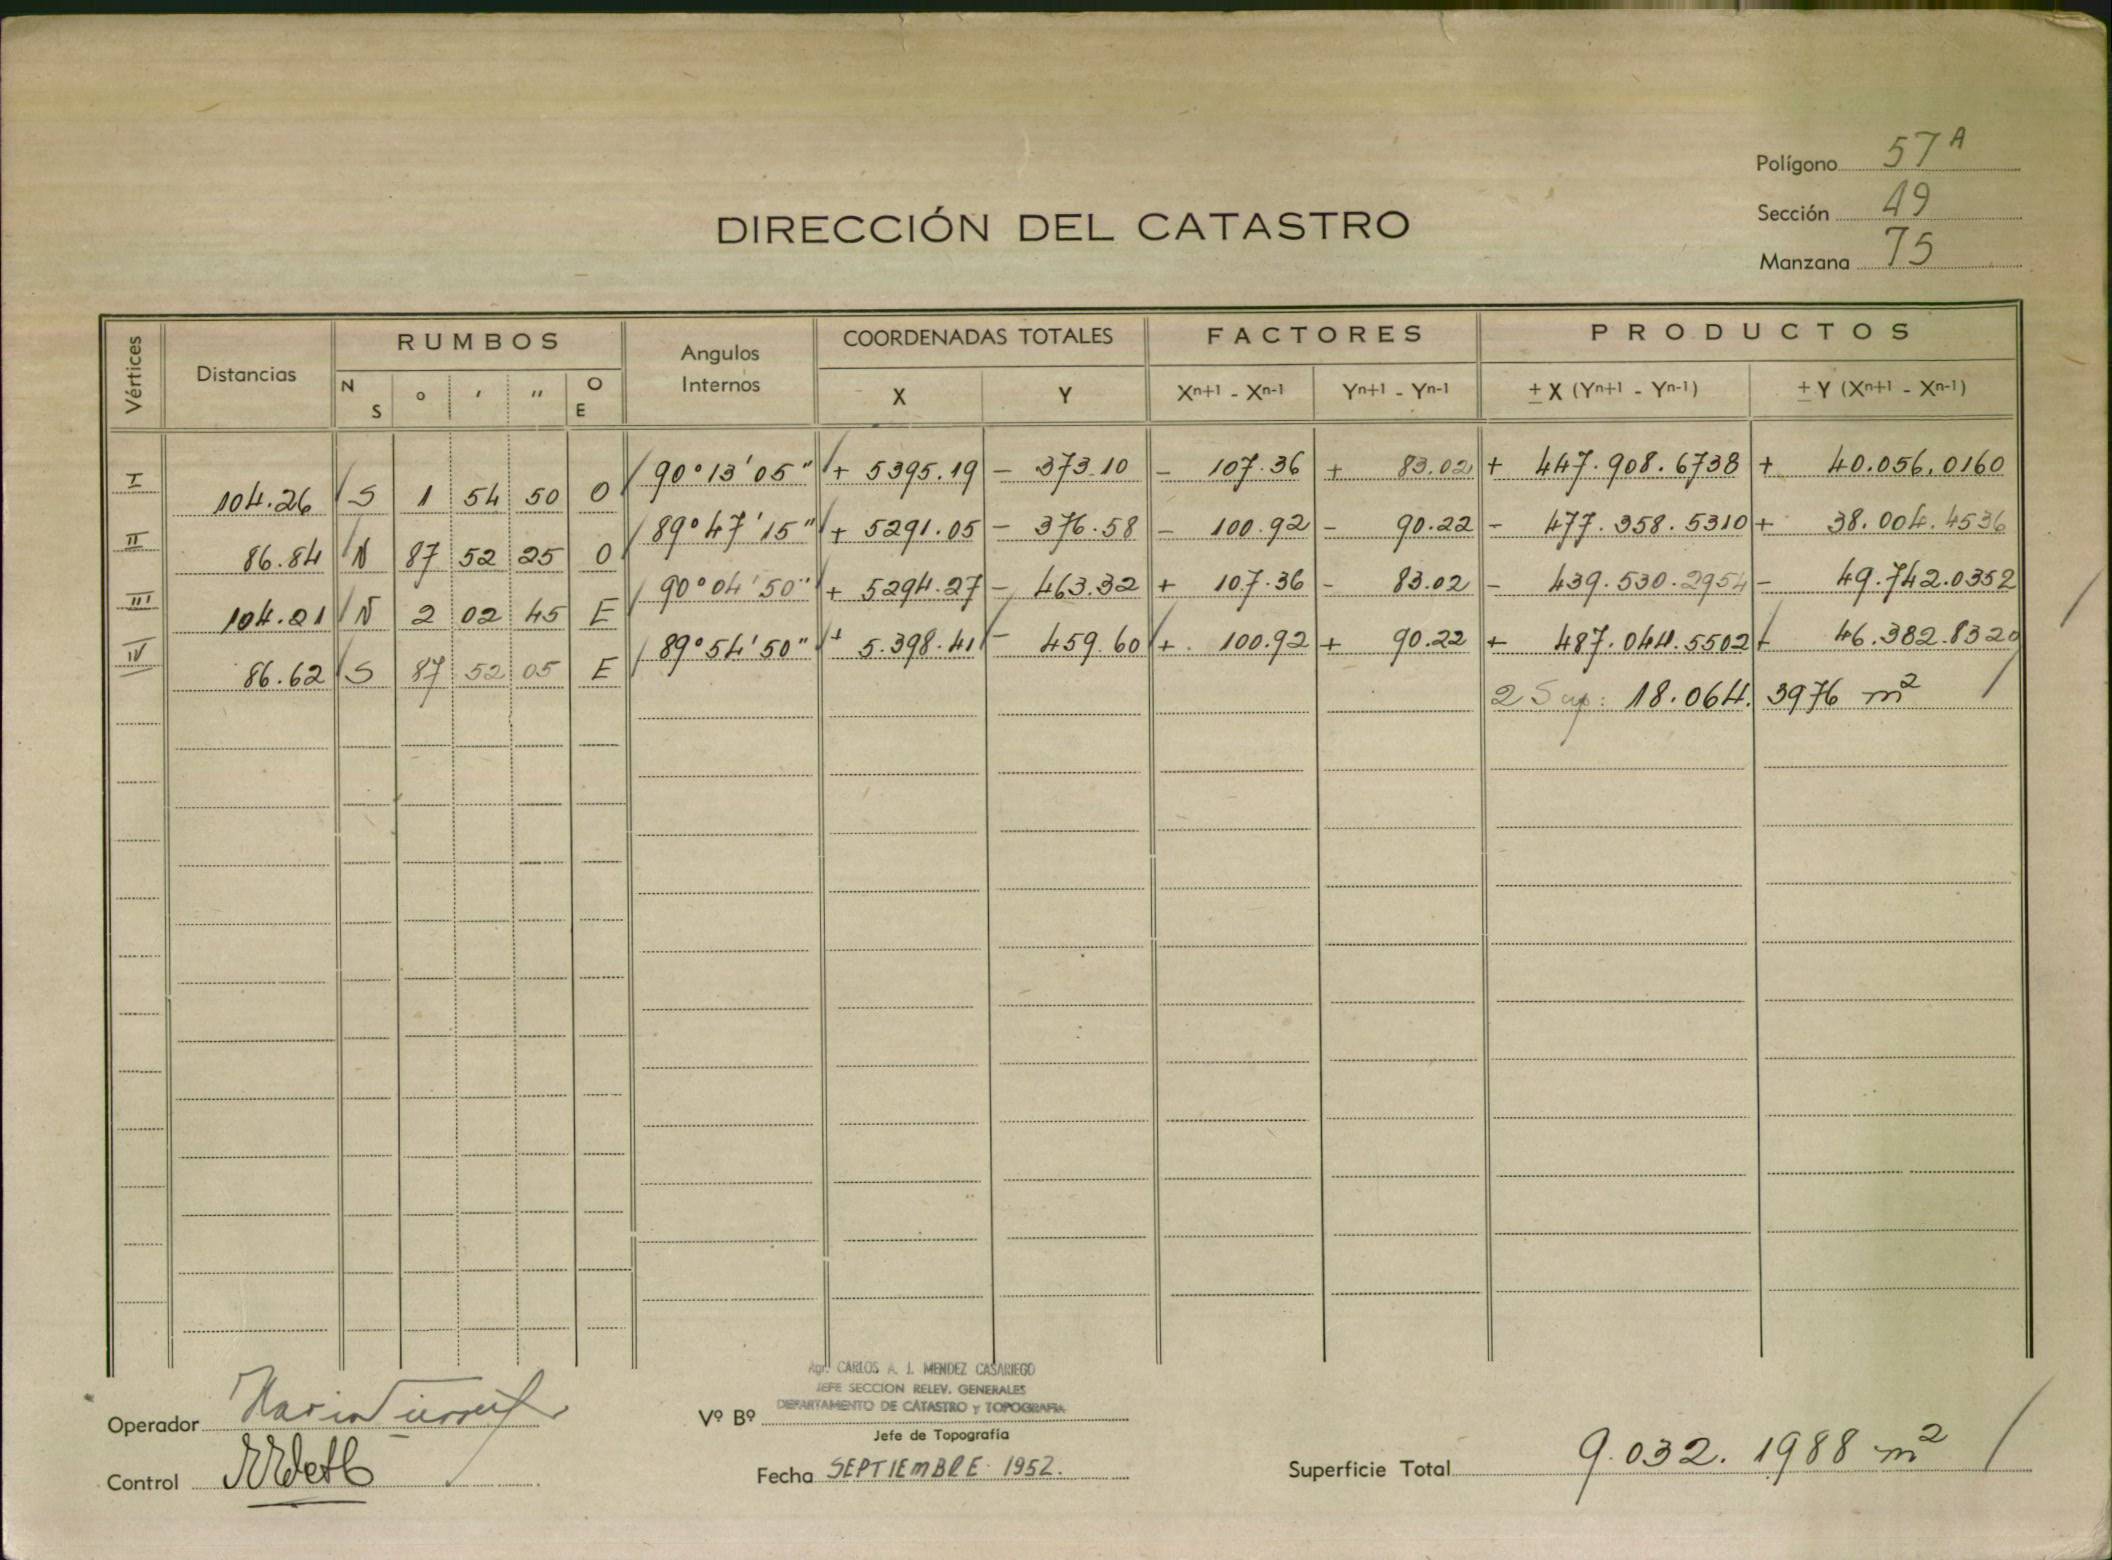 Polígono 57 A
Sección 49
Manzana 75
DIRECCIÓN DEL CATASTRO
Vértices Distancias RUMBOS Angulos Internos COORDENADAS TOTALES FACTORES PRODUCTOS
N S ° ' " O E X Y Xn+1 - Xn-1 Yn+1 - Yn-1 ± X (Yn+1 - Yn-1) ± Y (Xn+1 - Xn-1)
I 90° 13' 05" + 5395.19 - 373.10 - 107.36 + 83.02 + 447.908.6738 + 40.056.0160
104.26 S 1 54 50 O
II 89° 47' 15" + 5291.05 - 376.58 - 100.92 - 90.22 - 477.358.5310 + 38.004.4536
86.84 N 87 52 25 O
III 90° 04' 50" + 5294.27 - 463.32 + 107.36 - 83.02 - 439.530.2954 - 49.742.0352
104.21 N 2 02 45 E
IV 89° 54' 50" + 5.398.41 - 459.60 + 100.92 + 90.22 + 487.044.5502 - 46.382.8320
86.62 S 87 52 05 E
2 Sup: 18.064.3976 m²
Agr. CARLOS A. J. MENDEZ CASARIEGO
JEFE SECCION RELEV. GENERALES
DEPARTAMENTO DE CATASTRO y TOPOGRAFIA
Operador Vº Bº
Jefe de Topografía
Control Fecha SEPTIEMBRE 1952. Superficie Total 9.032.1988 m²